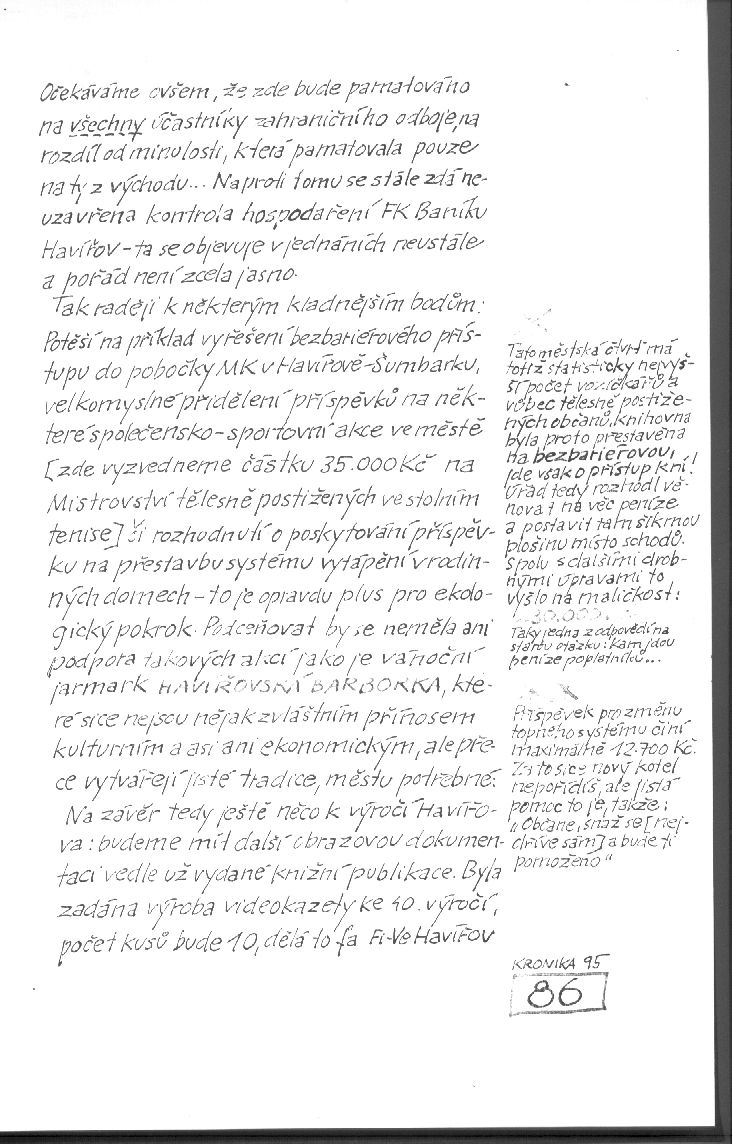 Očekáváme ovšem, že zde bude pamatováno
na všechny účastníky zahraničního odboje, na
rozdíl od minulosti, která pamatovala pouze
na ty z východu... Naproti tomu se stále zdá ne-
uzavřena kontrola hospodaření FK Baníku
Havířov - ta se objevuje v jednáních neustále
a pořád není zcela jasno.
Tak raději k některým kladnějším bodům:
Potěší na příklad vyřešení bezbariérového přís-
tupu do pobočky MK v Havířově-Šumbarku,
velkomyslné přidělení příspěvků na něk-
teré společensko-sportovní akce ve městě
[zde vyzvedneme částku 35.000 Kč na
Mistrovství tělesně postižených ve stolním
tenise] či rozhodnutí o poskytování příspěv-
ku na přestavbu systému vytápění v rodin-
ných domech - to je opravdu plus pro ekolo-
gický pokrok. Podceňovat by se neměla ani
podpora takových akcí jako je vánoční
jarmark HAVÍŘOVSKÁ BARBORKA, kte-
ré sice nejsou nějak zvláštním přínosem
kulturním a asi ani ekonomickým, ale pře-
ce vytvářejí jisté tradice, městu potřebné.
Na závěr tedy ještě něco k výročí Havířo-
va: budeme mít další obrazovou dokumen-
taci vedle už vydané knižní publikace. Byla
zadána výroba videokazety ke 40. výročí,
počet kusů bude 10, dělá to fa Fi-Ve Havířov
Tato městská čtvrť má
totiž statisticky nejvyš-
ší počet vozíčkářů a
vůbec tělesně postiže-
ných občanů, knihovna
byla proto přestavěna
na bezbariérovou,
jde však o přístup k ní.
Úřad tedy rozhodl vě-
novat na věc peníze
a postavit tam šikmou
plošinu místo schodů.
Spolu s dalšími drob-
nými úpravami to
vyšlo na maličkost:
30.000.
Taky jedna z odpovědí na
starou otázku: kam jdou
peníze poplatníků...
Příspěvek pro změnu
topného systému činí
maximálně 12.700 Kč.
Za to sice nový kotel
nepořídíš, ale jistá
pomoc to je, takže:
"Občane, snaž se [nej-
dříve sám] a bude ti
pomoženo"
KRONIKA 95
86